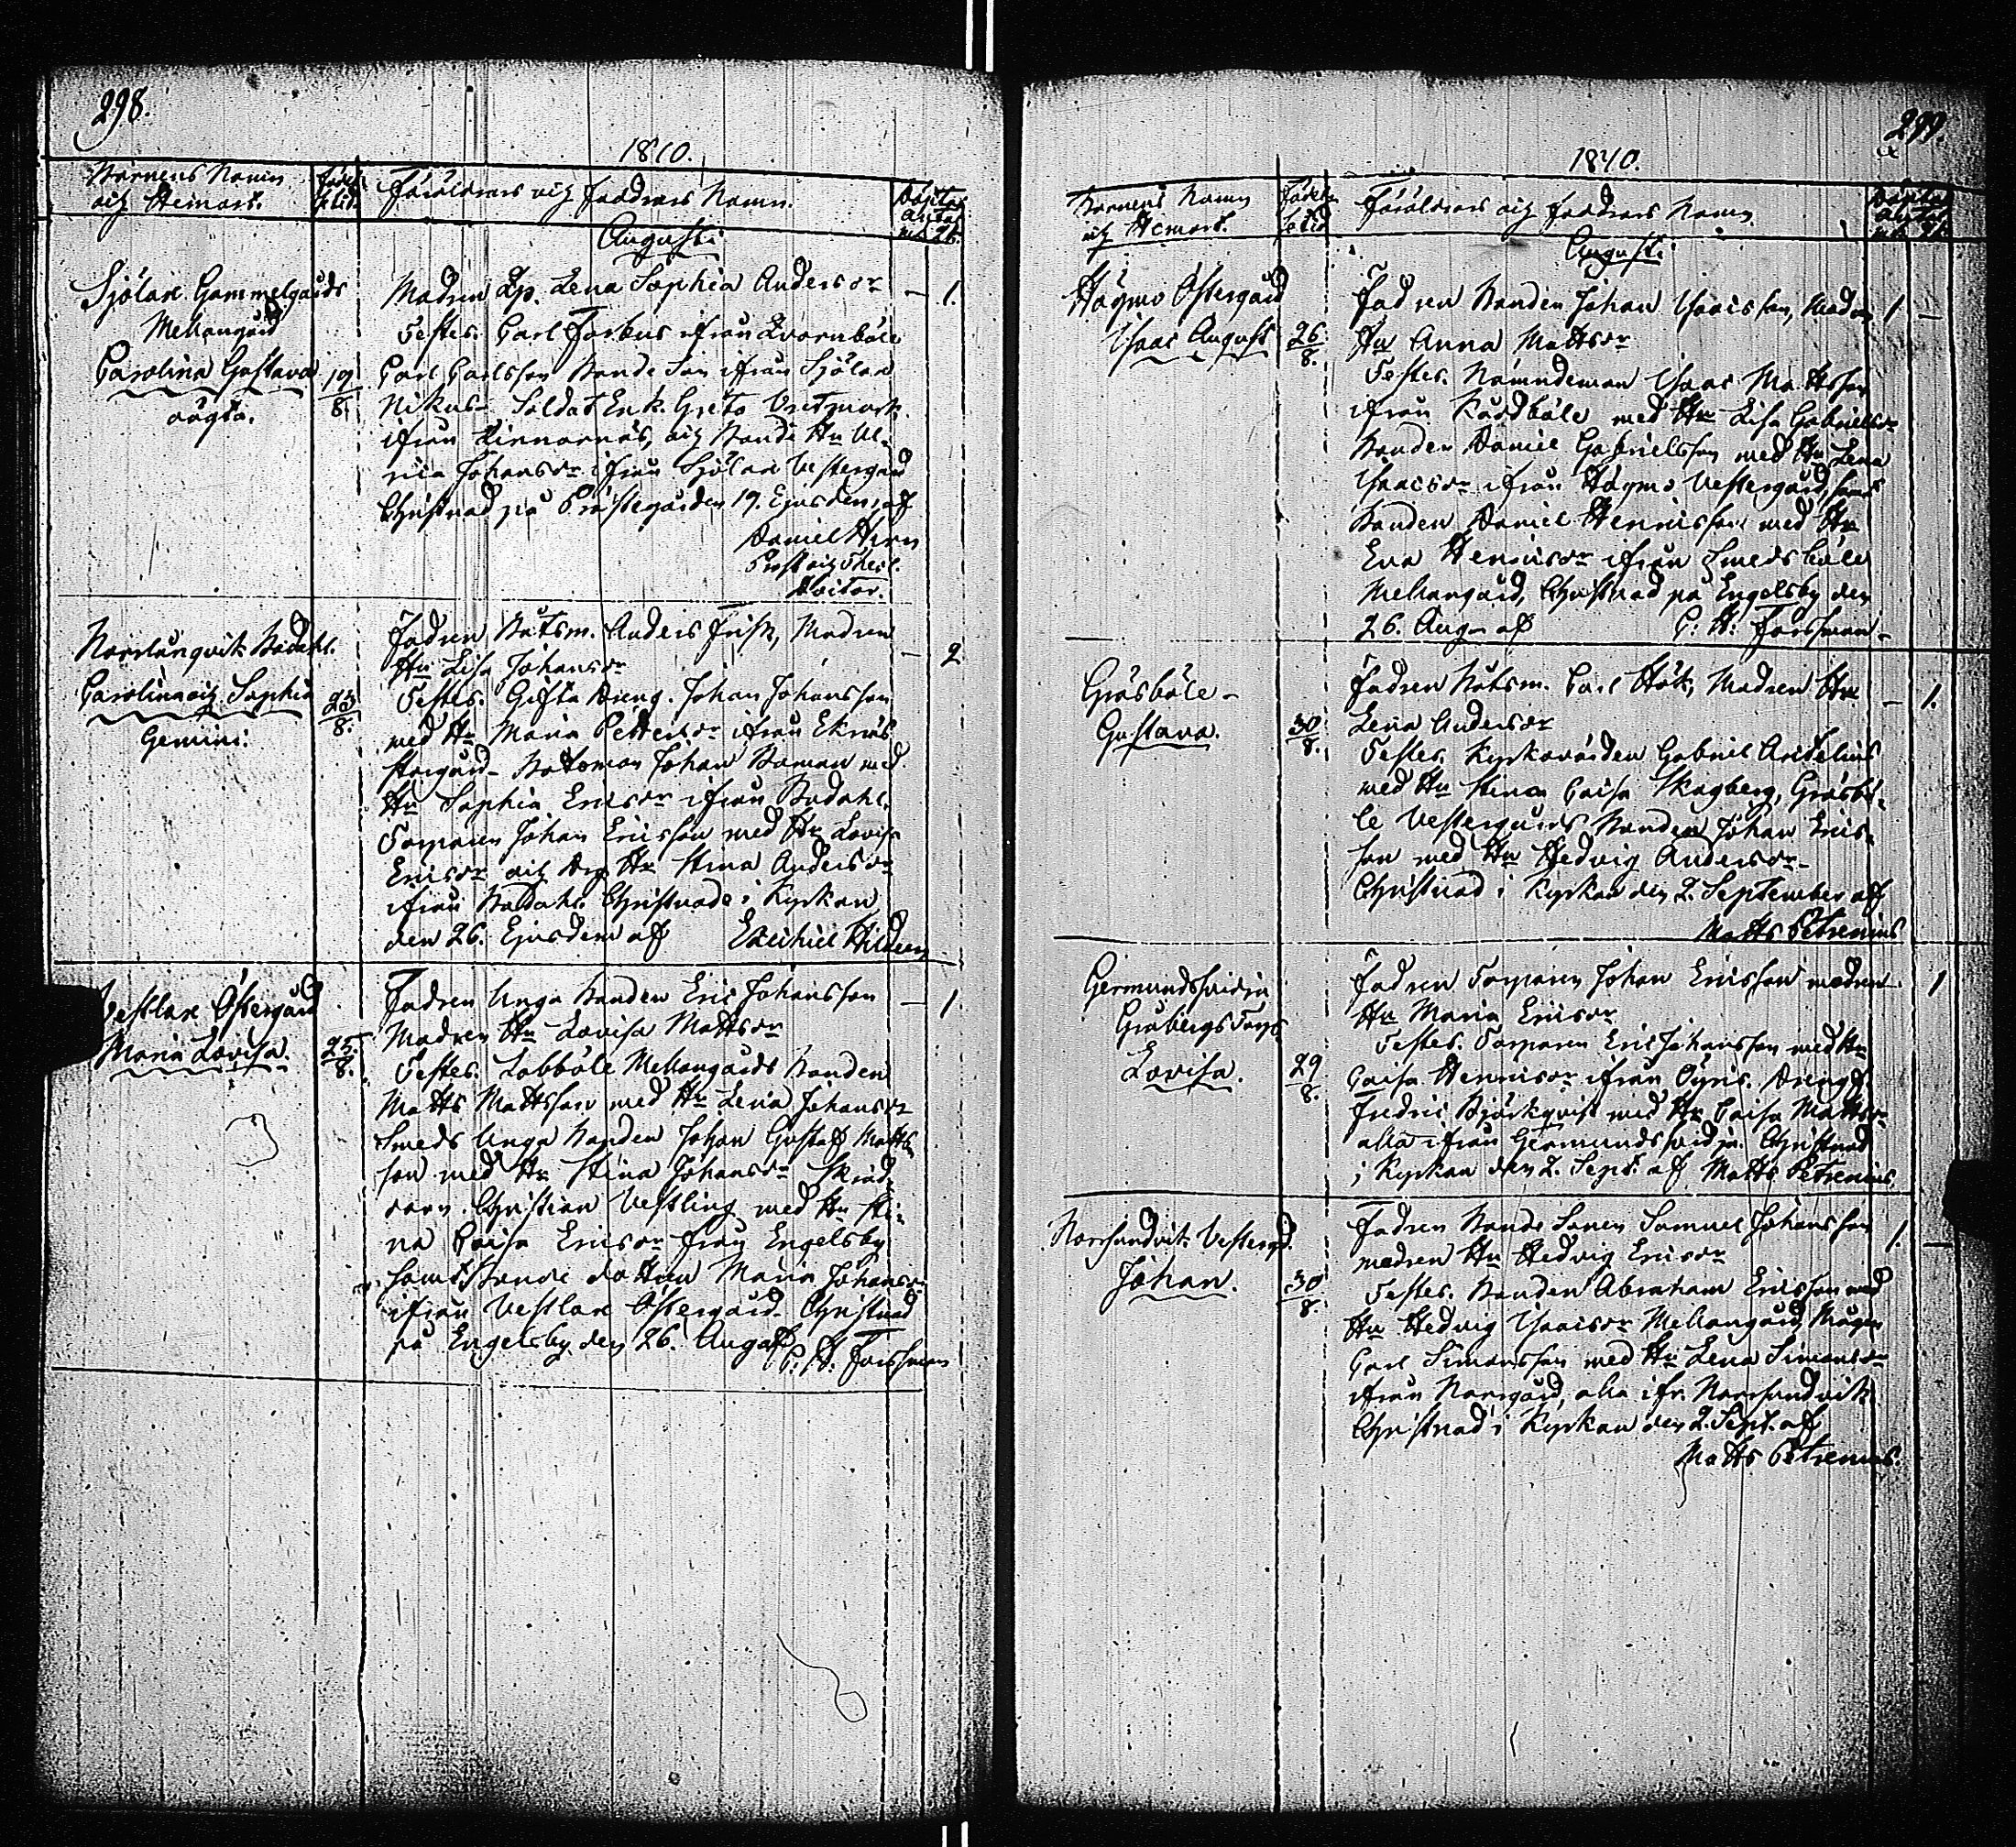 298.
1840.
Barnens Namn
och Hemort.
Födelsetid.
Föräldrars och Faddrars Namn.
Döptas
antal
m. q.
Augusti
Sjölax Gammelgårds
Mellangård
Carolina Gustava
oägta.
19/8.
Modren Lena Sophia Andersdr
Testes. Carl Forbus ifrån
Carl Carlsson Bonde Son ifrån Sjölax
Soldat Enk. Greta
ifrån och Bonde Hu Ul-
rica Johansdr ifrån Sjölax Vestergård
Christnad på Prästegården 19. Ejusdem af
Daniel Hirn
Prost och Theol.
Doctor.
— 1.
Norrlångvik Bådahl.
Carolina och Sophia
Gemini.
23/8.
Fadren Båtsm. Anders Frisk, Modren
Hu Lisa Johansdr
Testes. Gifta Dreng. Johan Johansson
med Hu Maria Pettersdr ifrån Eknäs
Storgård. Båtsman Johan Boman med
Hu Sophia Ericsdr ifrån Bådahl.
Torparen Johan Ericsson med Hu Lovisa
Ericsdr och Hu Stina Andersdr
ifrån Bådahl. Christnade i Kyrkan
den 26. Ejusdem af Ezechiel Hildeen
— 2
Vestlax Östergård
Maria Lovisa.
25/8.
Fadren Unga Bonden Eric Johansson
Modren Hu Lovisa Mattsdr
Testes. Lobböle Mellangårds Bonden
Matts Mattsson med Hu Lena Johansdr
Smeds Unga Bonden Johan Gustaf Matts
son med Hu Stina Johansdr Skräd-
darn Christian Vestling med Hu Sti-
na Caisa Ericsdr från Engelsby
samt Bonde dottren Maria Johansdr
ifrån Vestlax Östergård. Christnad
på Engelsby den 26. Aug. af
C. H. Forssman
— 1.
299.
1840.
Barnens Namn
och Hemort.
Födelsetid
Föräldrars och Faddrars Namn
Döptas
antal
m. q.
Augusti
Högmo Östergård
Isaac August
26/8.
Fadren Bonden Johan Isaacsson, Modren
Hu Anna Mattsdr
Testes. Nämndeman Isaac Mattsson
ifrån Kårdböle med Hu Lisa Gabrielsdr
Bonden Daniel Gabrielsson med Hu Lena
Isaacsdr ifrån Högmo Vestergård, samt
Bonden Daniel Henricsson med Hu
Eva Henricsdr ifrån Smedsböle
Mellangård, Christnad på Engelsby den
26. Aug. af C: H: Forssman
1 —
Gräsböle
Gustava.
30/8.
Fadren Båtsm. Carl Hök, Modren Hu
Lena Andersdr
Testes. Kyrkovärden Gabriel Arthelius
med Hu Stina Caisa Skogberg, Gräsbö-
le Vestergårds Bonden Johan Erics-
son med Hu Hedvig Andersdr
Christnad i Kyrkan den 2. September af
Matts Petrenius
— 1.
Germundssvidja
Gråbergs Torp
Lovisa.
29/8.
Fadren Torparen Johan Ericsson modren
Hu Maria Ericsdr
Testes. Torparen Eric Johansson med Hu
Caisa Henricsdr ifrån Dreng
Fredric Björkqvist med Hu Caisa Mattsdr
alla ifrån Germundssvidja. Christnad
i Kyrkan den 2. Sept. af Matts Petrenius.
1
Norrsundvik Vestergd.
Johan.
30/8.
Fadren Bonde Sonen Samuel Johansson
modren Hu Hedvig Ericsdr
Testes. Bonden Abraham Ericsson med
Hu Hedvig Isaacsdr Mellangård, Mågen
Carl Simonsson med Hu Lena Simonsdr
ifrån Norrgård, alla ifr. Norrsundvik
Christnad i Kyrkan den 2. Sept. af
Matts Petrenius.
1. —